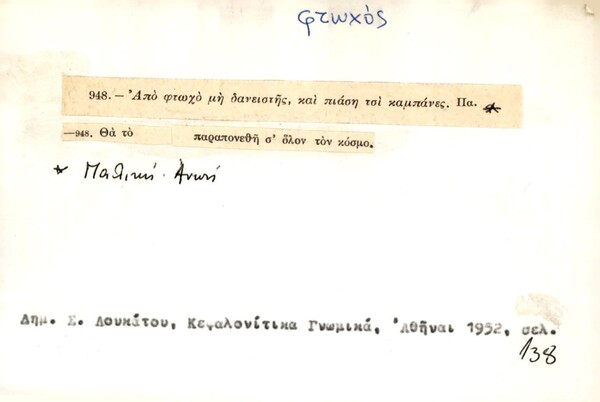 φτωχός
948.—Ἀπὸ φτωχὸ μὴ δανειστῆς, καὶ πιάση τσὶ καμπάνες. Πα. *
—948. Θὰ τὸ παραπονεθῆ σ' ὅλον τὸν κόσμο.
* Παλικὴ
Δημ. Σ. Λουκάτου, Κεφαλονίτικα Γνωμικά, Ἀθῆναι 1952, σελ.
138